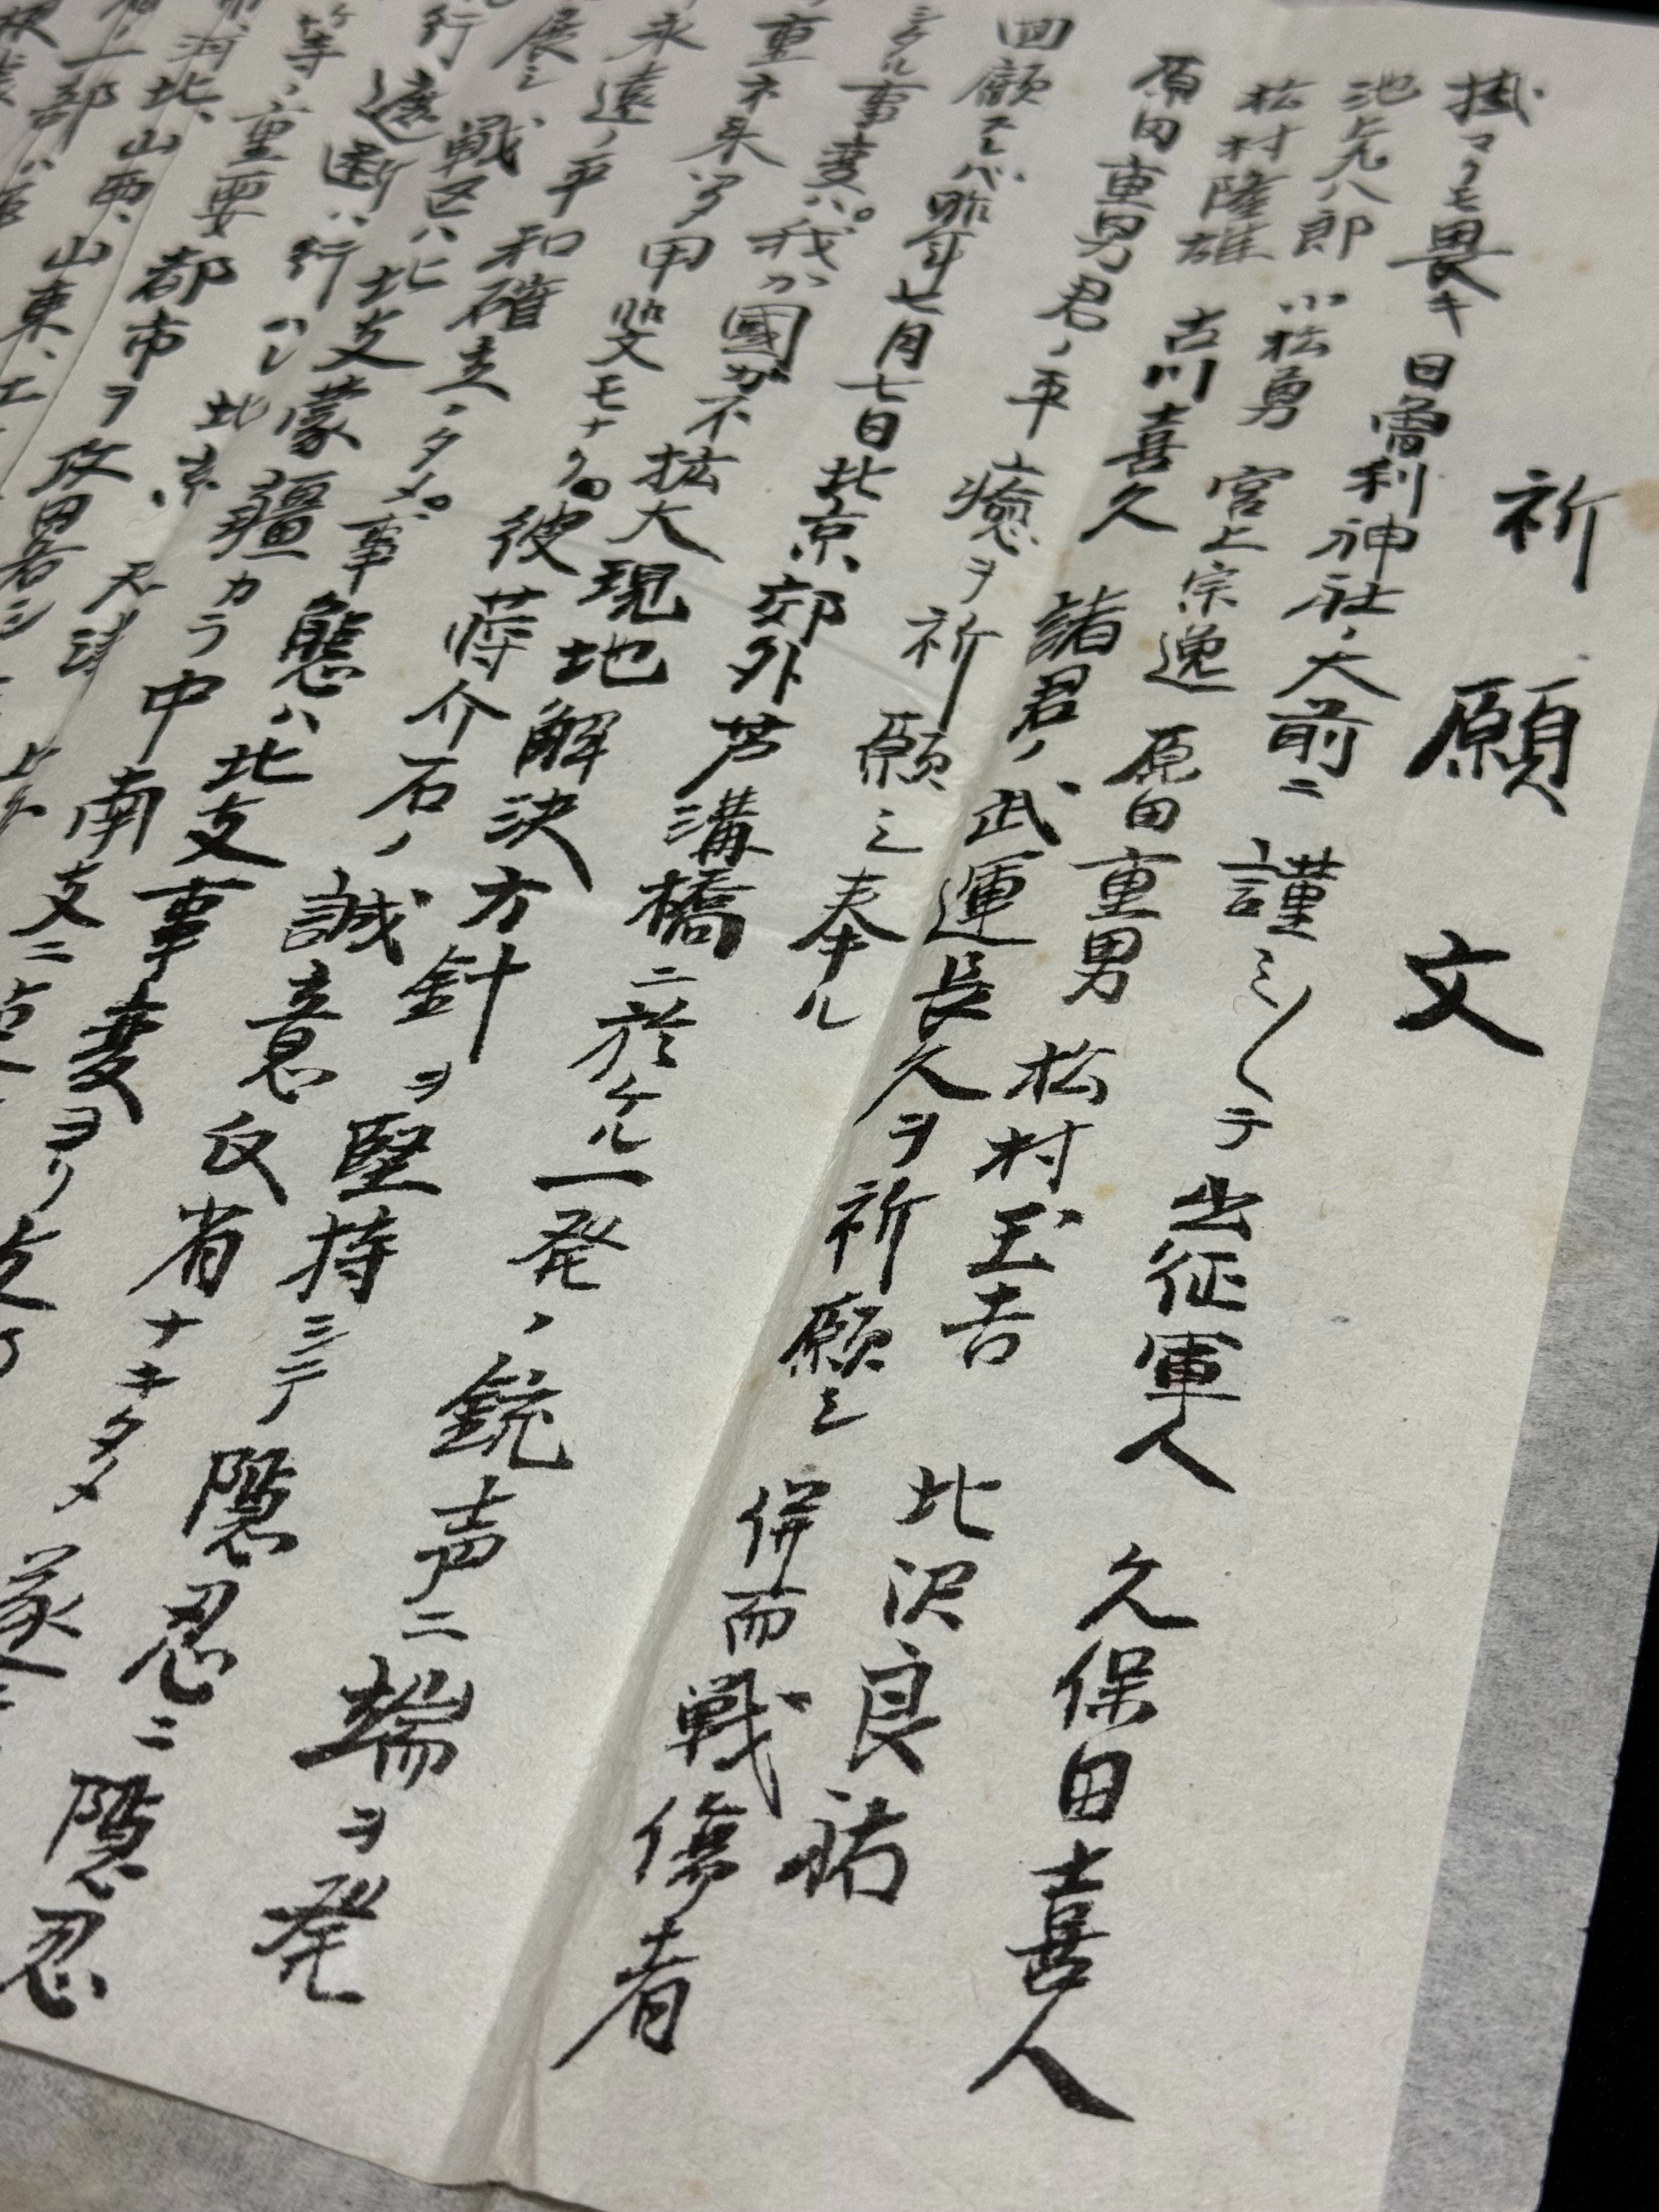 祈願文
掛マクモ畏キ日魯利神社ノ大前ニ謹ミ〳〵テ出征軍人 久保田喜人
池先八郎 小松勇 宮上宗逸 原田重男 松村玉吉 北沢良祐
松村隆雄 古川喜久 諸君ノ武運長久ヲ祈願シ 併而戦傷者
原田重男君ノ平癒ヲ祈願シ奉ル
回顧スレバ昨年七月七日北京郊外芦溝橋ニ於ケル一発ノ銃声ニ端ヲ発
シタル事変ハ我カ國ガ不拡大現地解決方針ヲ堅持シテ隠忍ニ隠忍
重ネ来ツタ甲斐モナク彼蒋介石ノ誠意反省ナキタメ遂ニ
永遠ノ平和確立ノタメ事態ハ北支事変ヨリ支
展シ戦区ハ北支蒙疆カラ中南支ニ
行 遮断ハ行ハレ北京 天津 上海
等ノ重要都市ヲ攻略シ
河北、山西、山東、
一部